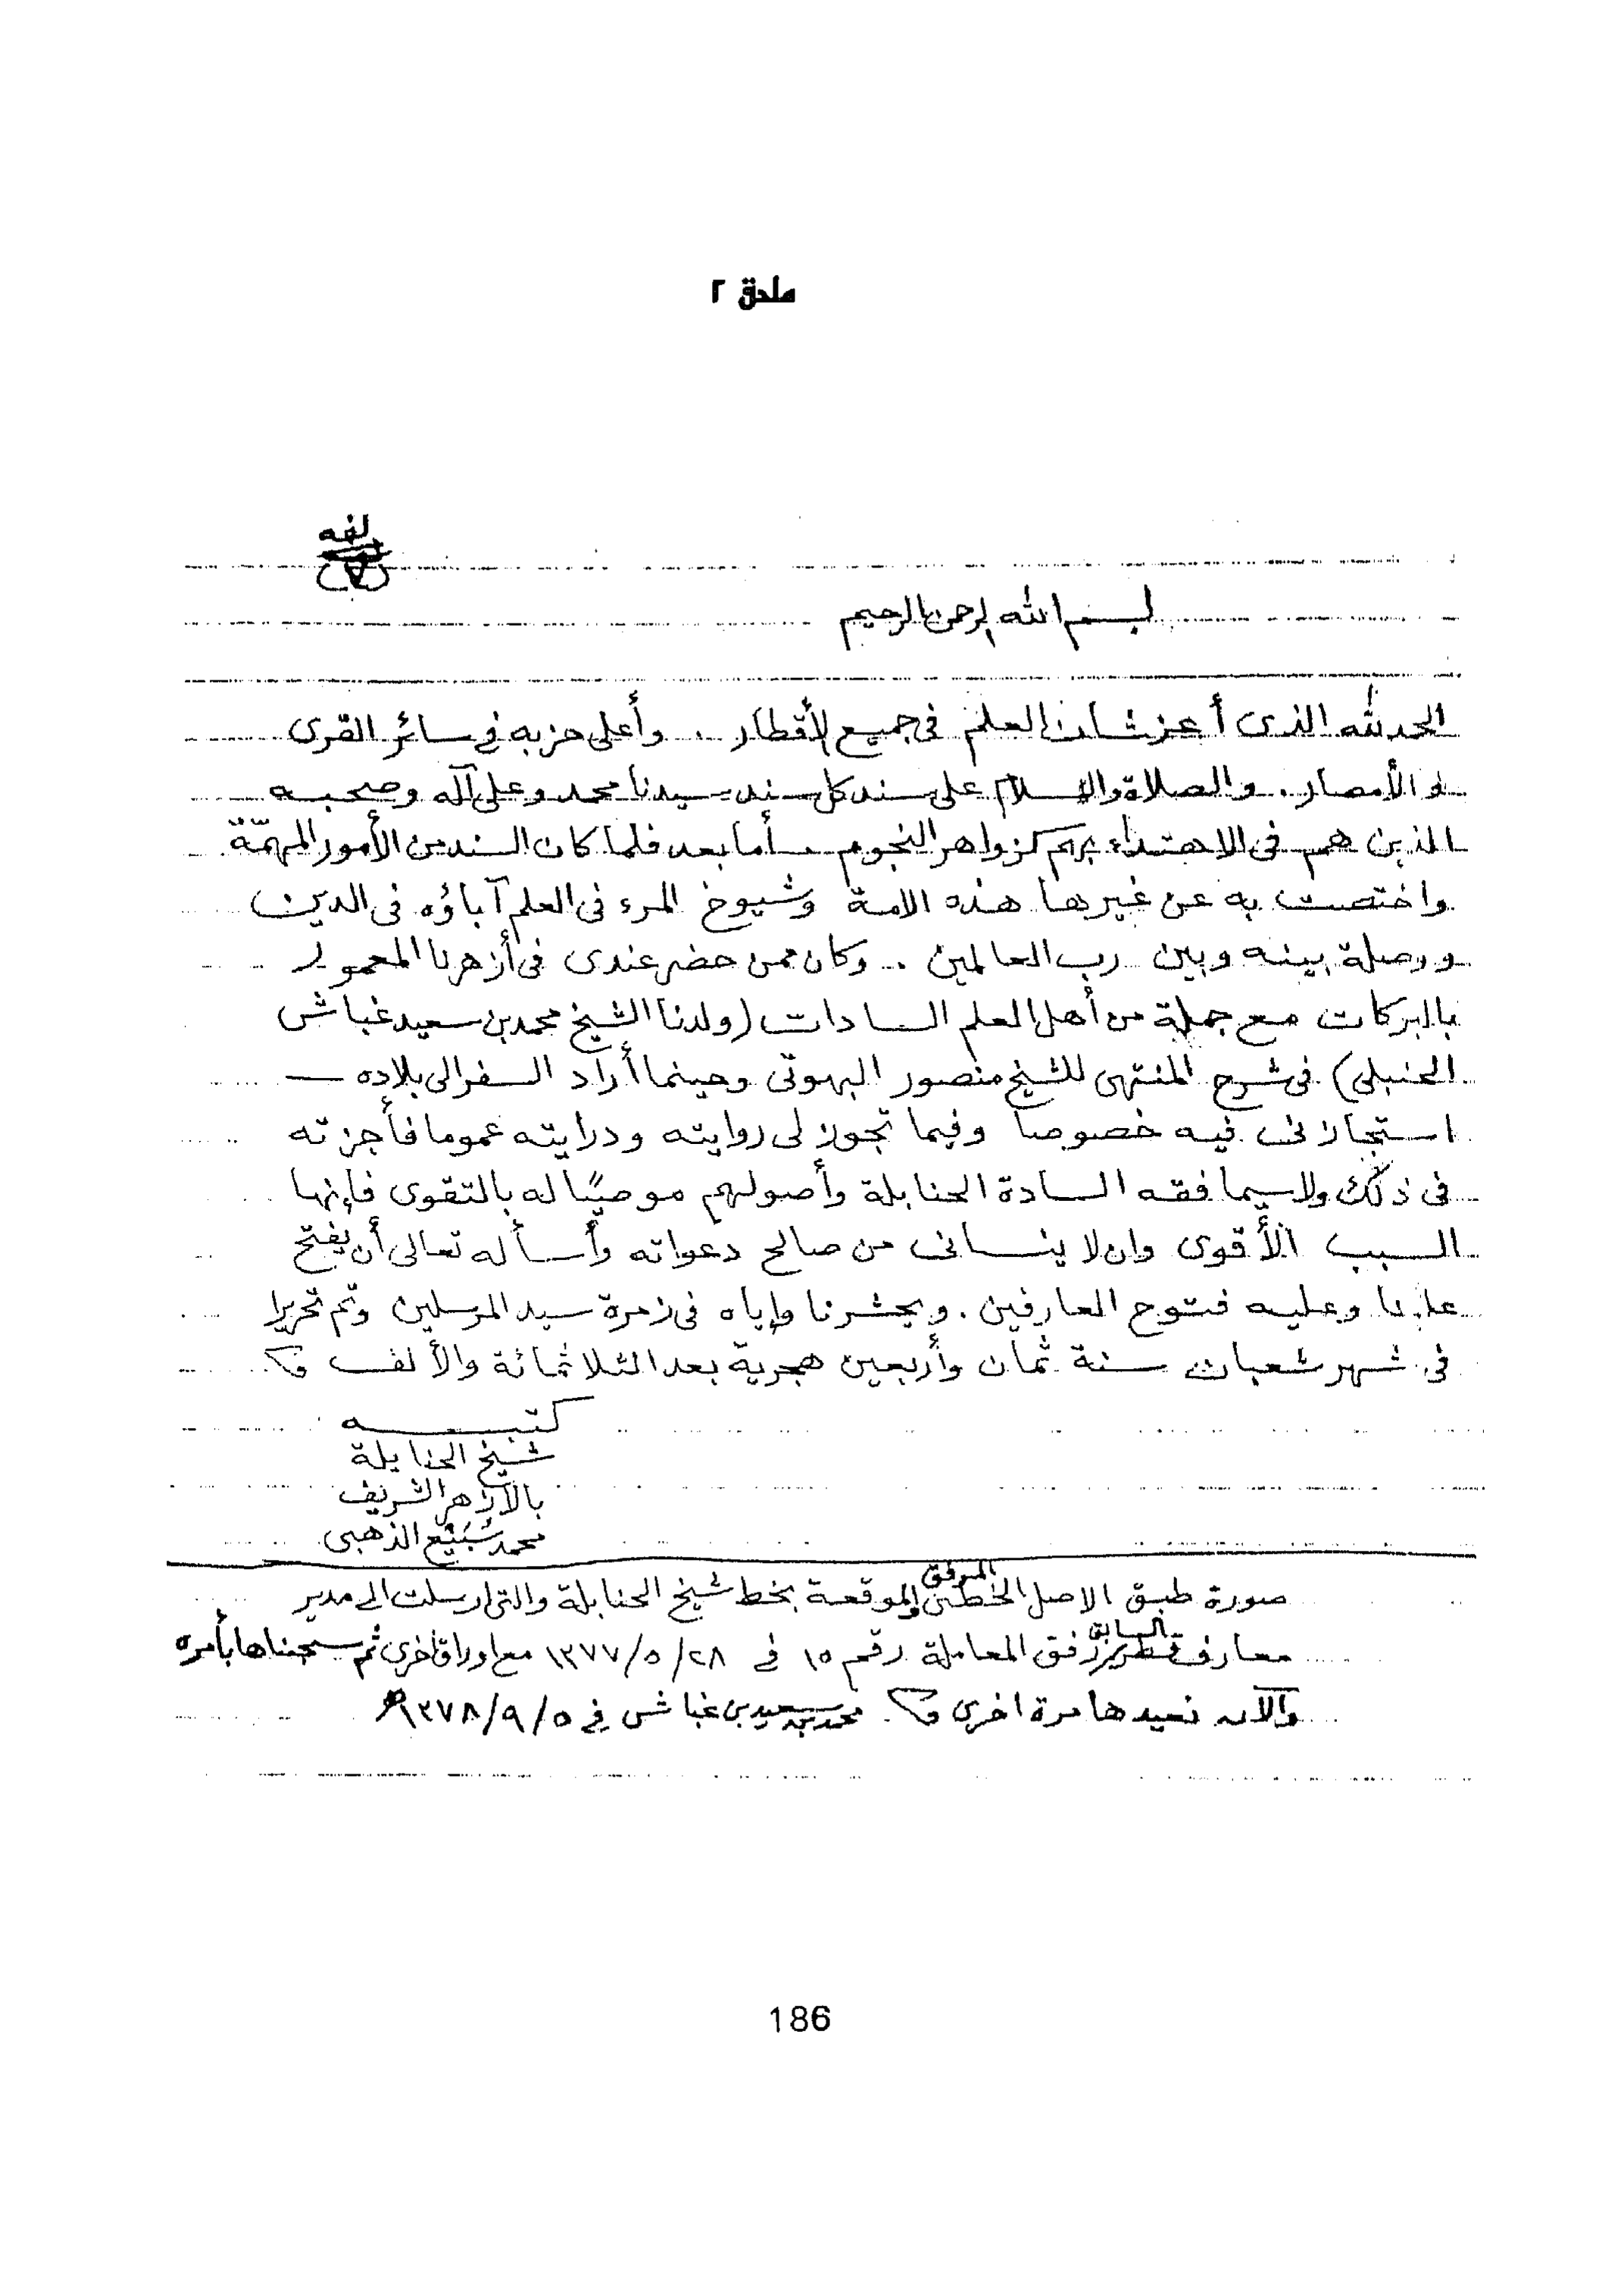 ملحق ٢
لفه
بسم الله الرحمن الرحيم
الحمد لله الذى أعز شأن العلم فى جميع الأقطار .. وأعلى حزبه في سائر القرى
والأمصار . والصلاة والسلام على سند كل سند سيدنا محمد وعلى آله وصحبه
الذين هم فى الاهتداء بهم كزواهر النجوم . أما بعد فلما كان السند من الأمور المهمّة
واختصت به عن غيرها هذه الامة وشيوخ المرء فى العلم آباؤه فى الدين
ووصلة بينه وبين رب العالمين .. وكان ممن حضر عندى فى أزهرنا المعمور
بالبركات مع جملة من أهل العلم السادات (ولدنا الشيخ محمد بن سعيد غباش
الحنبلى) فى شرح المنتهى للشيخ منصور البهوتى وحينما أراد السفر الى بلاده —
استجازنى فيه خصوصا وفيما تجوز لى روايته ودرايته عموما فأجزته
فى ذلك ولاسيما فقه السادة الحنابلة وأصولهم موصيًا له بالتقوى فإنها
السبب الأقوى وان لا ينسانى من صالح دعواته وأسأله تعالى أن يفتح
علينا وعليه فتوح العارفين . ويحشرنا وإياه فى زمرة سيد المرسلين وتم تحريرا
فى شهر شعبان سنة ثمان وأربعين هجرية بعد الثلاثمائة والألف
كتبه
شيخ الحنابلة
بالأزهر الشريف
محمد سُبَيْع الذهبى
صورة طبق الاصل الخطى المرفق والموقعة بخط شيخ الحنابلة والتى ارسلت الى مدير
معارف قطر السابق رفق المعاملة رقم ١٥ في ٢٨/٥/١٣٧٧ مع اوراق اخرى ثم سحبناها بأمره
والآن نعيدها مرة اخرى محمد بن سعيد بن غباش في ٥/٩/١٣٧٨
186